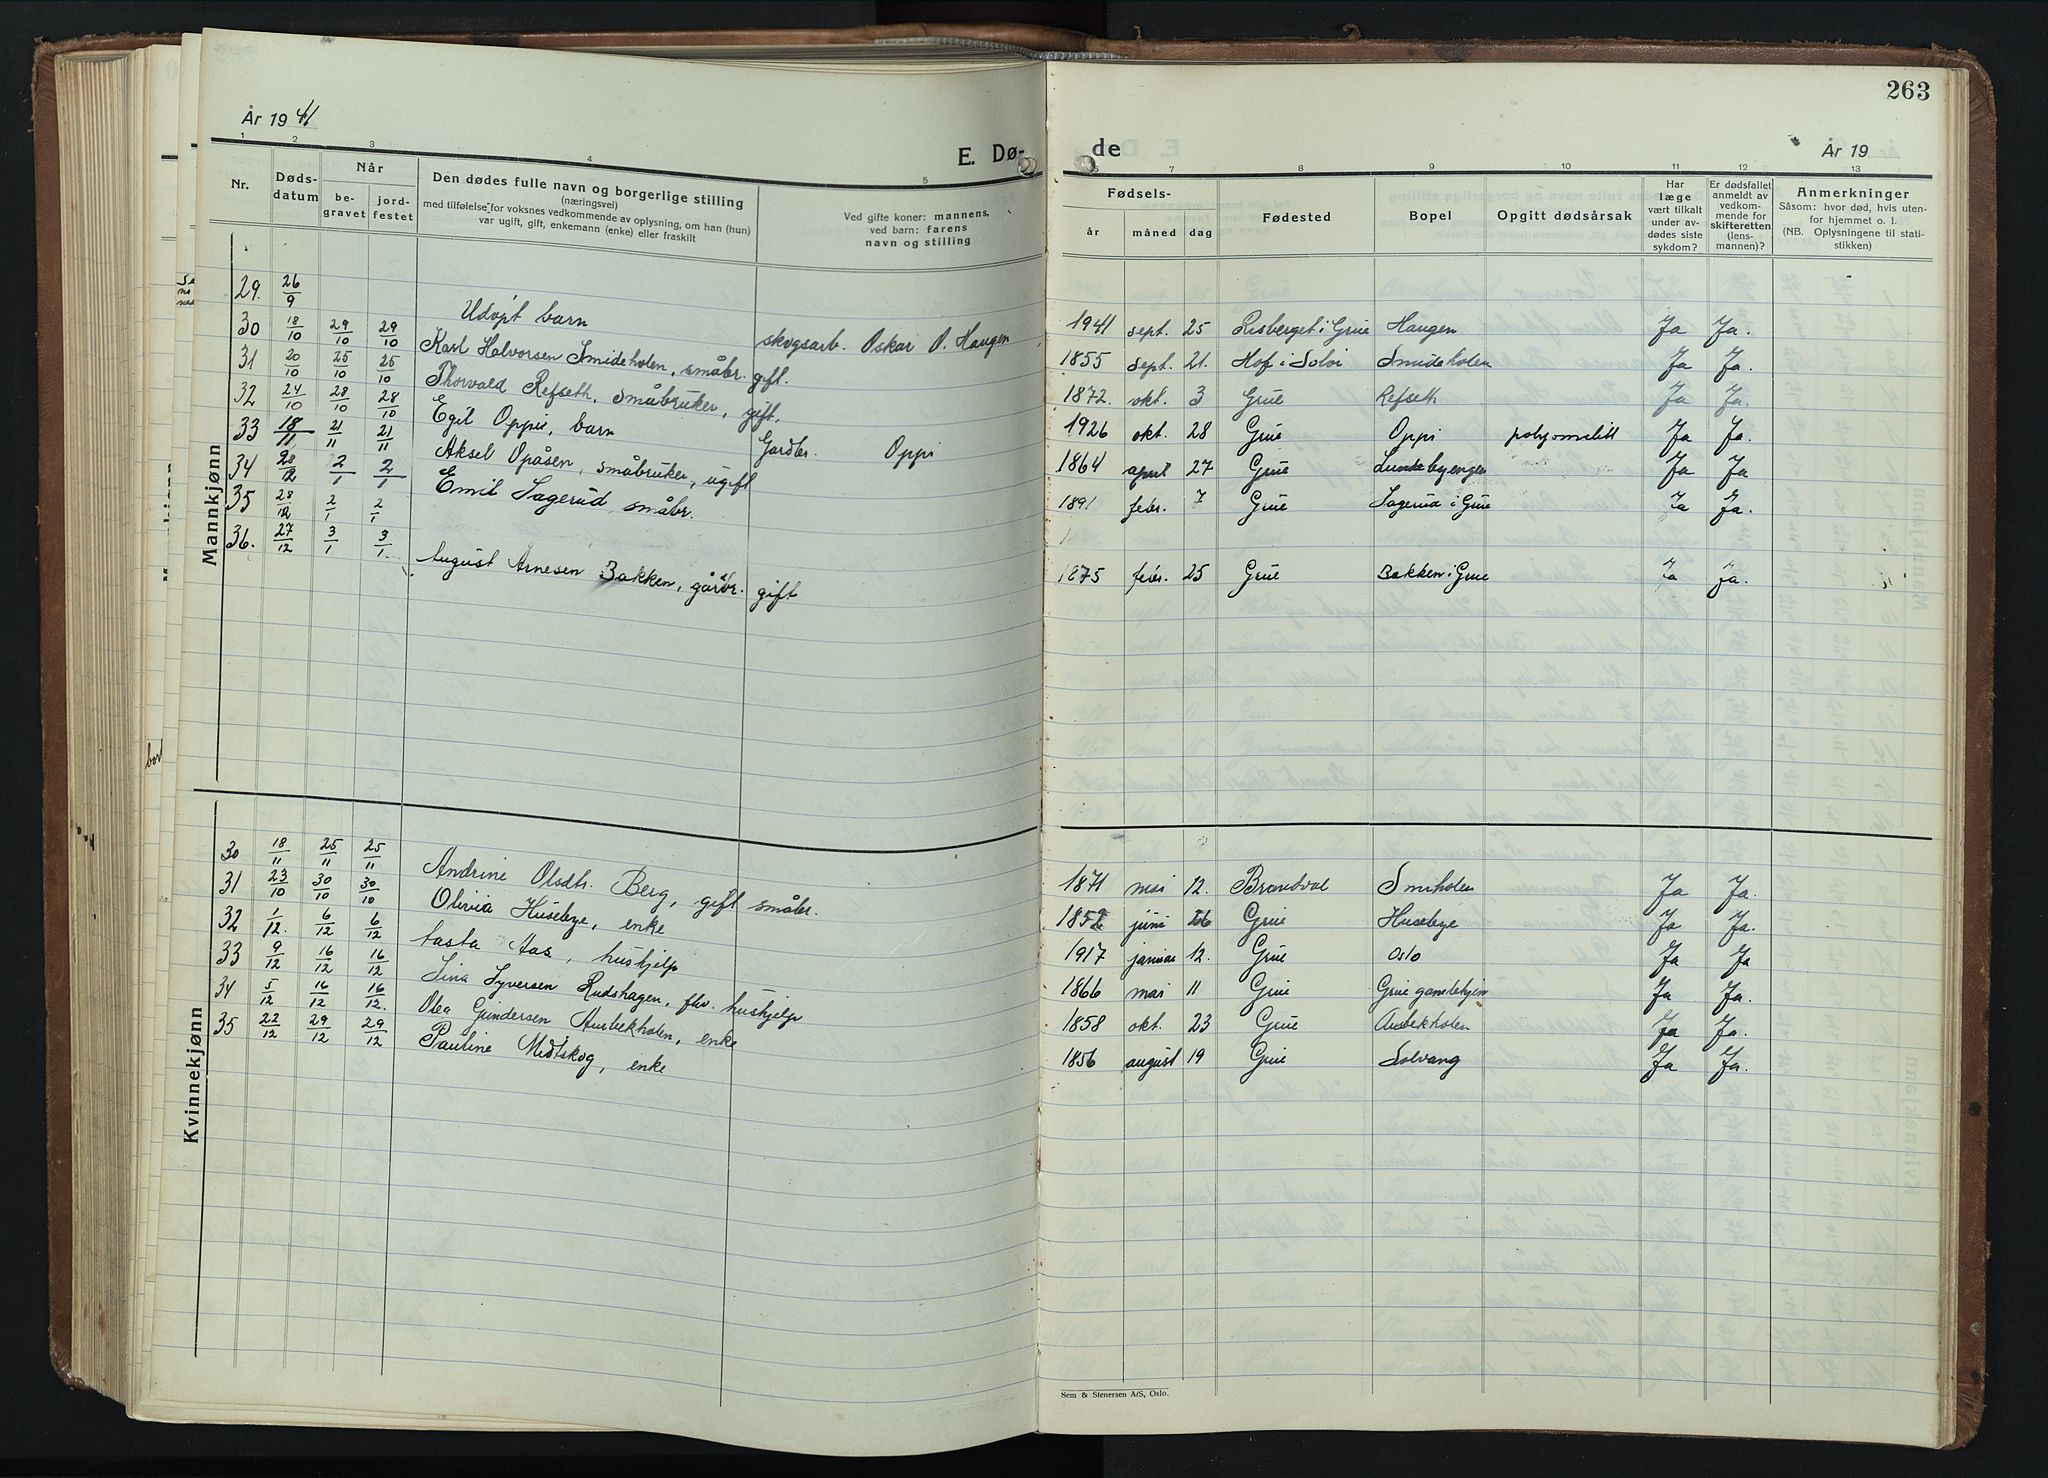 År 1941
E. Døde
År 19
263
1 2 3 4 5 6 7 8 9 10 11 12 13
Nr.
Døds-
datum
Når
be-
gravet
jord-
festet
Den dødes fulle navn og borgerlige stilling
(næringsvei)
med tilføielse for voksnes vedkommende av oplysning, om han (hun)
var ugift, gift, enkemann (enke) eller fraskilt
Ved gifte koner: mannens,
ved barn: farens
navn og stilling
Fødsels-
år måned dag
Fødested
Bopel
Opgitt dødsårsak
Har
læge
vært tilkalt
under av-
dødes siste
sykdom?
Er dødsfallet
anmeldt av
vedkom-
mende for
skifteretten
(lens-
mannen)?
Anmerkninger
Såsom: hvor død, hvis uten-
for hjemmet o. l.
(NB. Oplysningene til stati-
stikken)
Mannkjønn
29. 26/9 Udøpt barn skogsarb. Oskar O. Haugen 1941 sept. 25 Risberget i Grue Haugen Ja Ja.
30 18/10 29/10 29/10 Karl Halvorsen Smideholen, småbr. gift. 1855 sept. 21. Hof i Solør Smideholen Ja Ja.
31 20/10 25/10 25/10 Thorvald Refseth, småbruker, gift. 1872. okt. 3 Grue Refseth Ja Ja.
32 24/10 28/10 28/10 Egil Oppi, barn Gardbr. Oppi 1926 okt. 28 Grue Oppi Ja Ja.
33 18/11 21/11 21/11 Aksel Opåsen, småbruker, ugift 1864 april 27 Grue Lundebyengen Ja Ja
34 28/12 2/1 2/1 Emil Sagerud, småbr. 1891 febr. 7 Grue Sagerud i Grue Ja Ja.
35 28/12 2/1 2/1
36. 27/12 3/1 3/1. August Arnesen Bakken, gårdbr. gift 1875 febr. 25 Grue Bakken i Grue Ja Ja.
Kvinnekjønn
30 18/11 25/11 25/11 Andrine Olsdtr. Berg, gift småbr. 1871 mai 12. Brandval Smiholen Ja Ja.
31 23/10 30/10 30/10 Olivia Husebye, enke juni 26 Grue Husebye Ja Ja.
32 1/12. 6/12 6/12 Aasta Aas, hushjelp 1917 januar 12. Grue Oslo Ja Ja
33 9/12 16/12 16/12 Lina Syversen Rudshagen, fhv. hushjelp 1866 mai 11 Grue Grue gamlehjem Ja Ja.
34 5/12 16/12 16/12. Olea Gundersen Aurbekholen, enke 1858 okt. 23 Grue Aurbekholen Ja Ja.
35 22/12 29/12 29/12 Pauline Midtskog, enke 1856 august 19 Grue Solvang Ja Ja.
Sem & Stenersen A/S, Oslo.